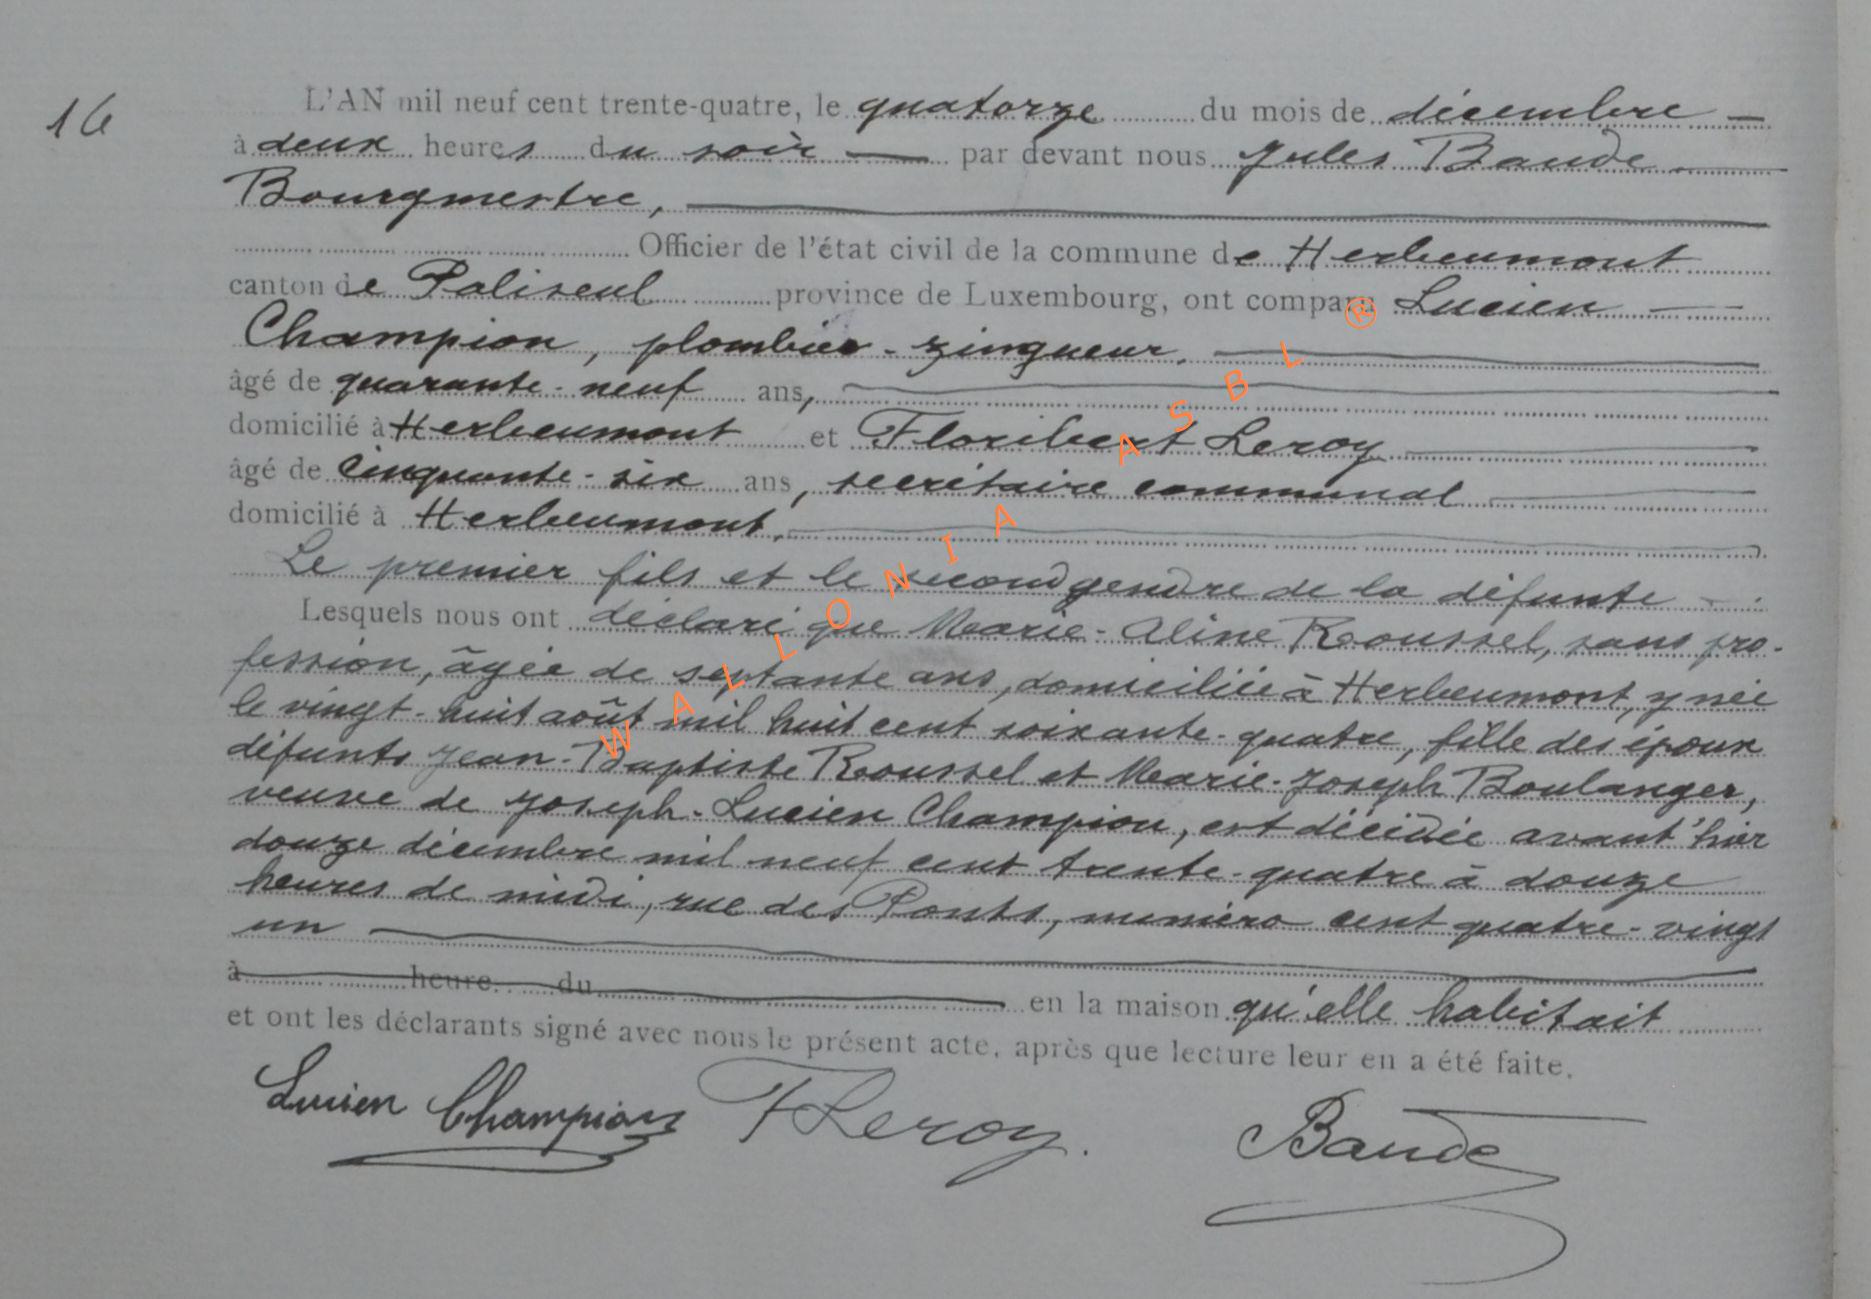 16
L'AN mil neuf cent trente-quatre, le quatorze du mois de décembre —
à deux heures du soir — par devant nous Jules Baude
Bourgmestre,
Officier de l'état civil de la commune de Herbeumont
canton de Paliseul province de Luxembourg, ont comparu Lucien —
Champion, plombier-zingueur.
âgé de quarante-neuf ans,
domicilié à Herbeumont et Floribert Leroy
âgé de cinquante-six ans, secrétaire communal
domicilié à Herbeumont,
Le premier fils et le second gendre de la défunte
Lesquels nous ont déclaré que Marie-Aline Roussel, sans pro-
fession, âgée de septante ans, domiciliée à Herbeumont, y née
le vingt-huit août mil huit cent soixante-quatre, fille des époux
défunts Jean-Baptiste Roussel et Marie-Joseph Boulanger,
veuve de Joseph-Lucien Champion, est décédée avant'hier
douze décembre mil neuf cent trente-quatre à douze
heures de midi, rue des Ponts, numéro cent quatre-vingt
un
à heure du en la maison qu'elle habitait
et ont les déclarants signé avec nous le présent acte, après que lecture leur en a été faite.
Lucien Champion FLeroy. Baude
WALLONIA ASBL ®